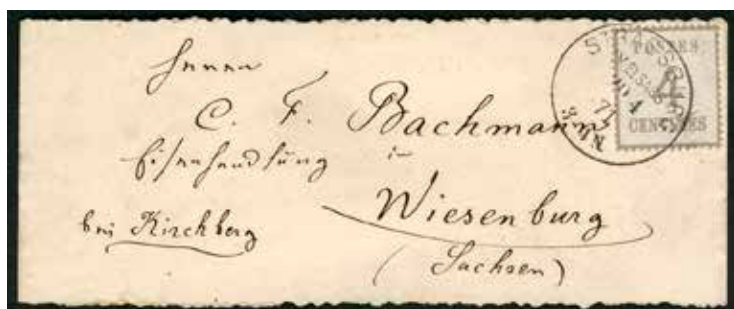 Herrn
C. F. Bachmann
Eisenhandlung in
Wiesenburg
bei Kirchberg
(Sachsen)
POSTES
4
CENTIMES